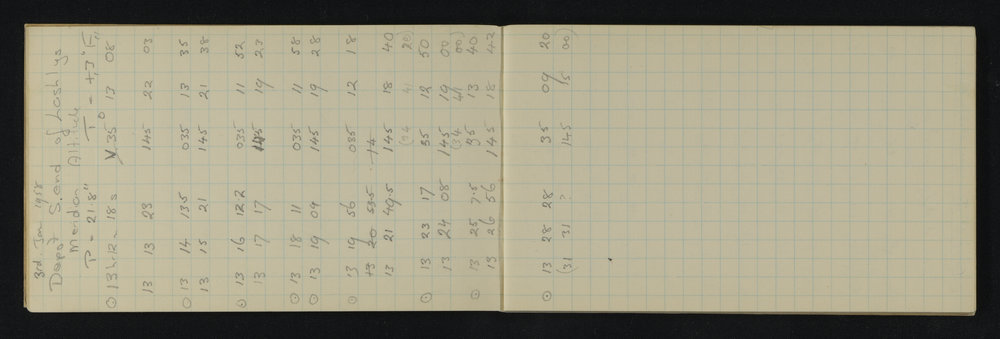 3rd Jan 1958
Depot S. end of Lashlys
Meridian Altitude
P = 21.8" T = +3°F
⊙ 13h 12m 18s 35° 13 08
13 13 23 145 22 03
⊙ 13 14 13.5 035 13 35
13 15 21 145 21 38
⊙ 13 16 12.2 035 11 52
13 17 17 145 19 23
⊙ 13 18 11 035 11 58
⊙ 13 19 09 145 19 28
⊙ 13 19 56 035 12 18
13 20 53.5 14
13 21 49.5 145 18 40
(34 41 20)
⊙ 13 23 17 35 12 50
13 24 08 145 19 00
(34 41 00)
⊙ 13 25 7.5 35 13 40
13 26 56 145 18 42
⊙ 13 28 28 35 09 20
(31 31 ? 145 15 00)